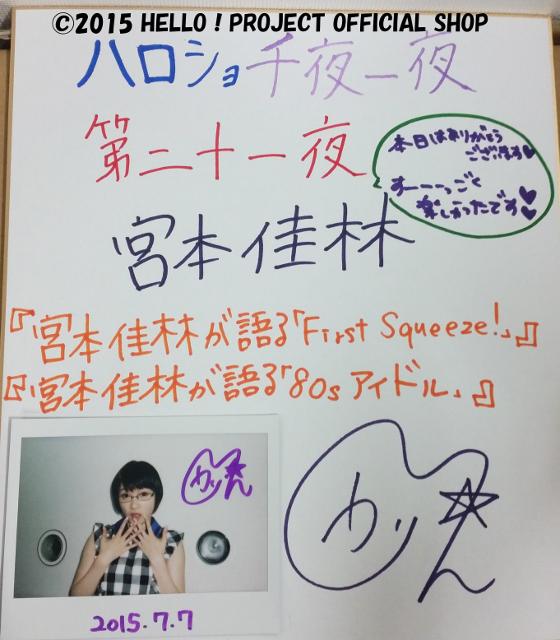 ©2015 HELLO！PROJECT OFFICIAL SHOP
ハロショ千夜一夜
第二十一夜
本日はありがとう
ございます♥
すーーーっごく
楽しかったです♥
宮本佳林
『宮本佳林が語る「First Squeeze!」』
『宮本佳林が語る「80sアイドル」』
2015.7.7